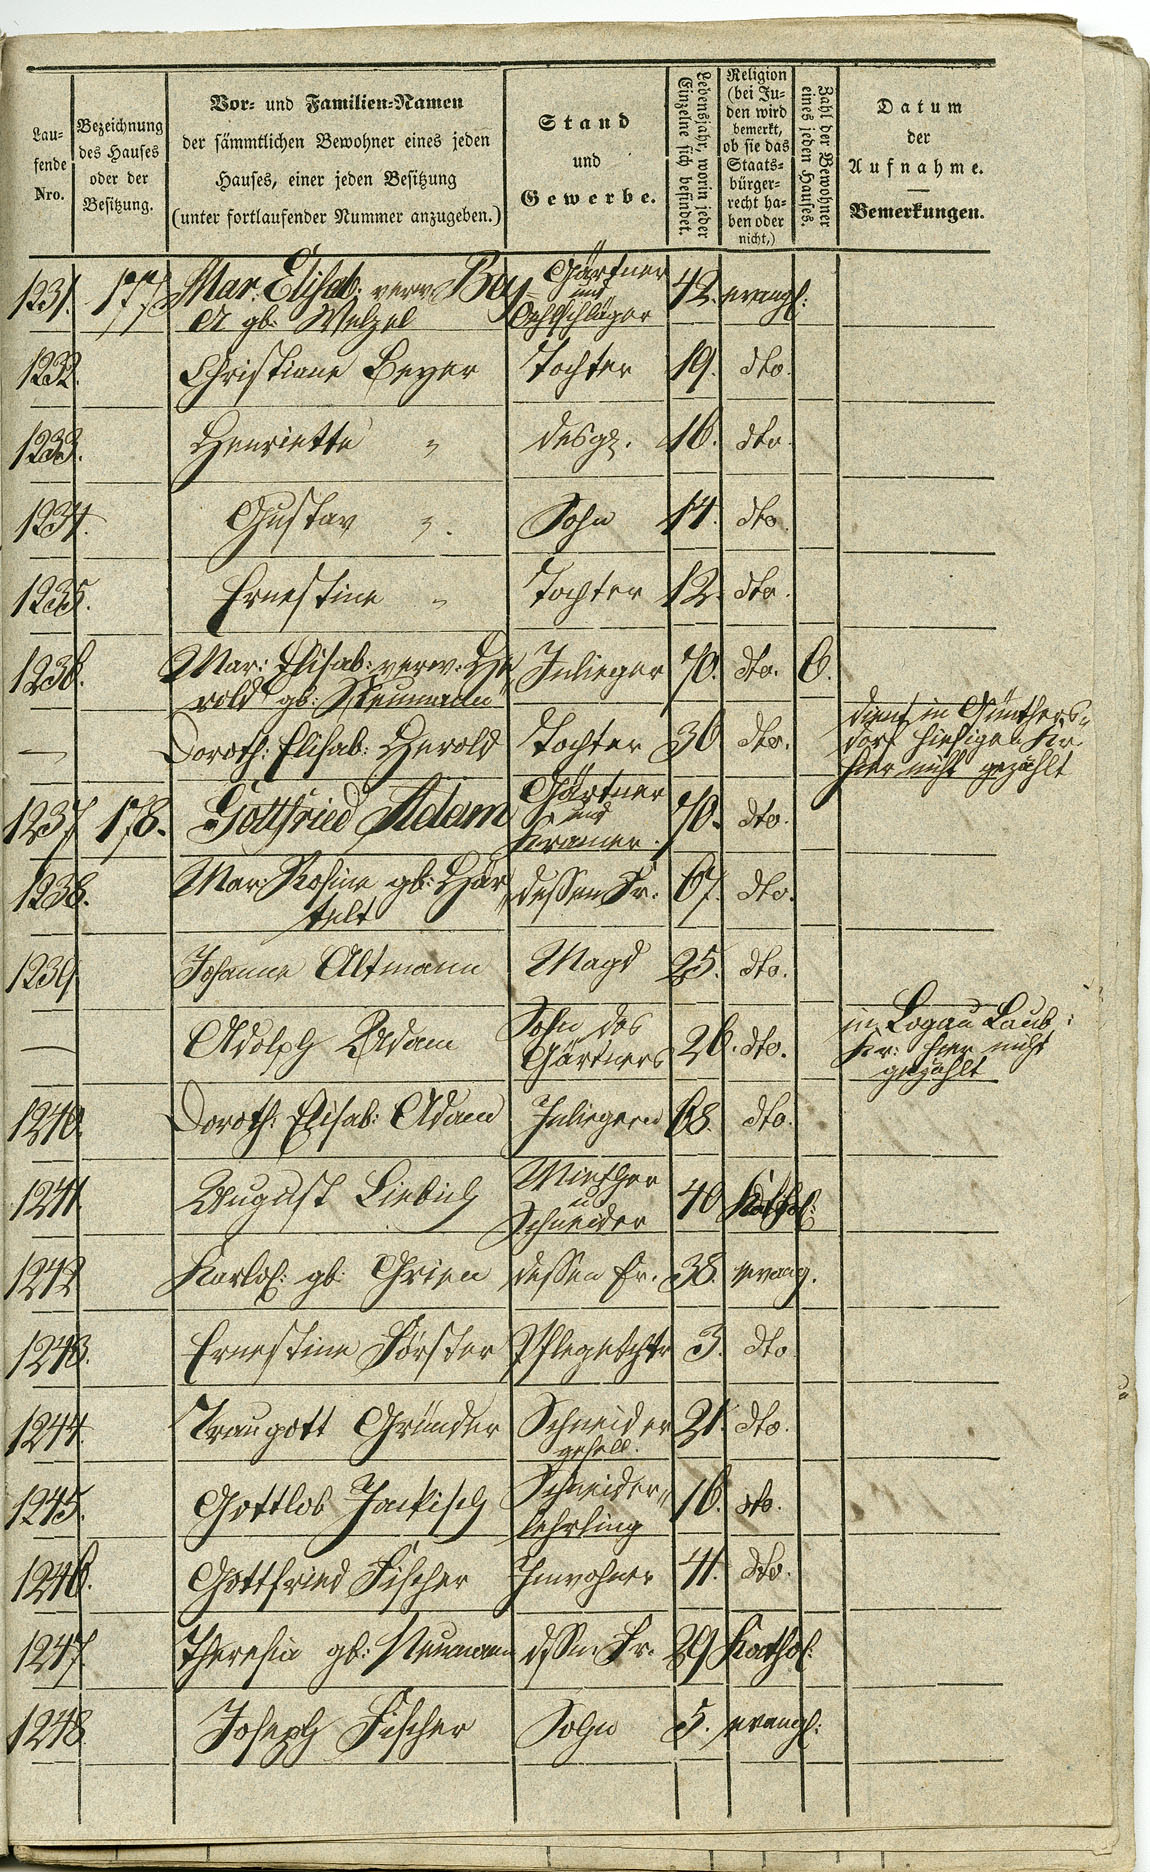 Lau-
fende
Nro.
Bezeichnung
des Hauses
oder der
Besitzung.
Vor- und Familien-Namen
der sämmtlichen Bewohner eines jeden
Hauses, einer jeden Besitzung
(unter fortlaufender Nummer anzugeben.)
Stand
und
Gewerbe.
Lebensjahr, worin jeder
Einzelne sich befindet.
Religion
(bei Ju-
den wird
bemerkt,
ob sie das
Staats-
bürger-
recht ha-
ben oder
nicht,)
Zahl der Bewohner
eines jeden Hauses.
Datum
der
Aufnahme.
Bemerkungen.
1231. 177. Mar: Elisab: verw: Bey Gärtner und 42. evangl:
er gb: Welzel Oehlschläger
1232. Christiane Beyer Tochter 19. dto.
1233. Henriette " desgl. 16. dto.
1234. Gustav ". Sohn 14. dto.
1235. Ernestine " Tochter 12. dto.
1236. Mar: Elisab: verw: He Inlieger 70. dto. 6.
rold gb: Neumann
— Doroth: Elisab: Herold Tochter 36 dto. dient in Günthers-
dorf hiesigen Kr.
hier nicht gezählt
1237. 178. Gottfried Adam Gärtner und Kramer. 70. dto.
1238. Mar: Rosine gb: Här dessen Fr. 67. dto.
telt
1239 Johanne Altmann Magd 25. dto.
— Adolph Adam Sohn des Gärtners 26. dto. in Logau Laub:
Kr: hier nicht
gezählt
1240. Doroth: Elisab: Adam Inliegerin 68. dto.
1241. August Liebich Miether u Schneider 40 Kathol:
1242 Karol: gb: Grien dessen Fr. 38. evang.
1243. Ernestine Förster Pflegetchtr 3. dto
1244. Traugott Gründer Schneider 21. dto.
gesell.
1245. Gottlob Jackisch Schneider- 16. dto.
lehrling
1246. Gottfried Fischer Inwohner 41. dto.
1247. Theresia gb: Neumann dssen Fr. 29 Kathol:
1248. Joseph Fischer Sohn 5. evangl: